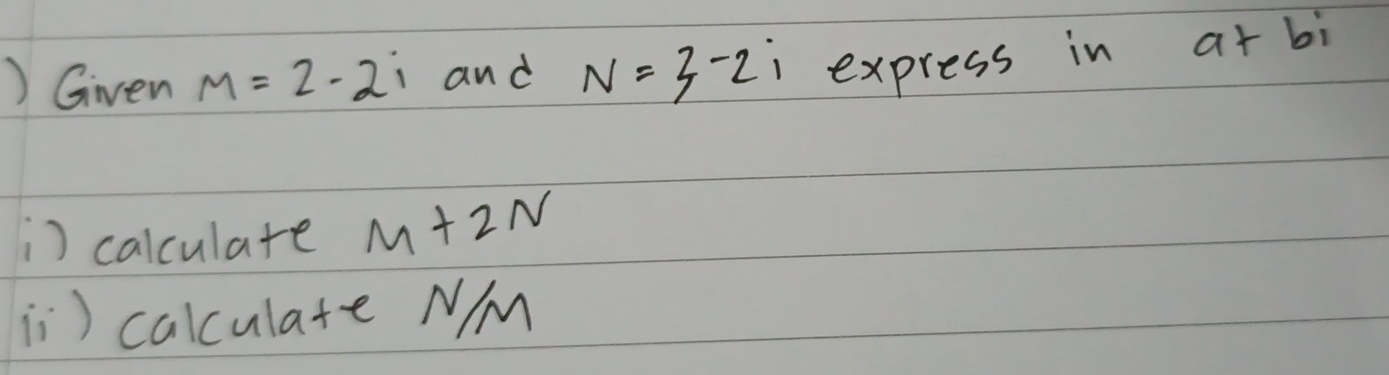 ) Given M = 2-2i and N = 3-2i express in a+bi
i) calculate M+2N
ii) calculate N/M